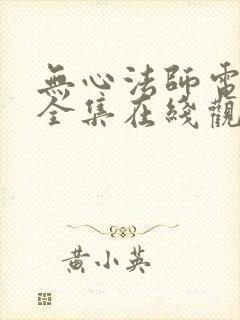 無心法師電
全集在綫觀
黄小英